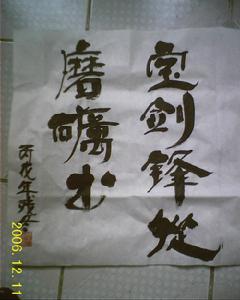 宝剑鋒從
磨礪出
丙戌年
2006.12.11